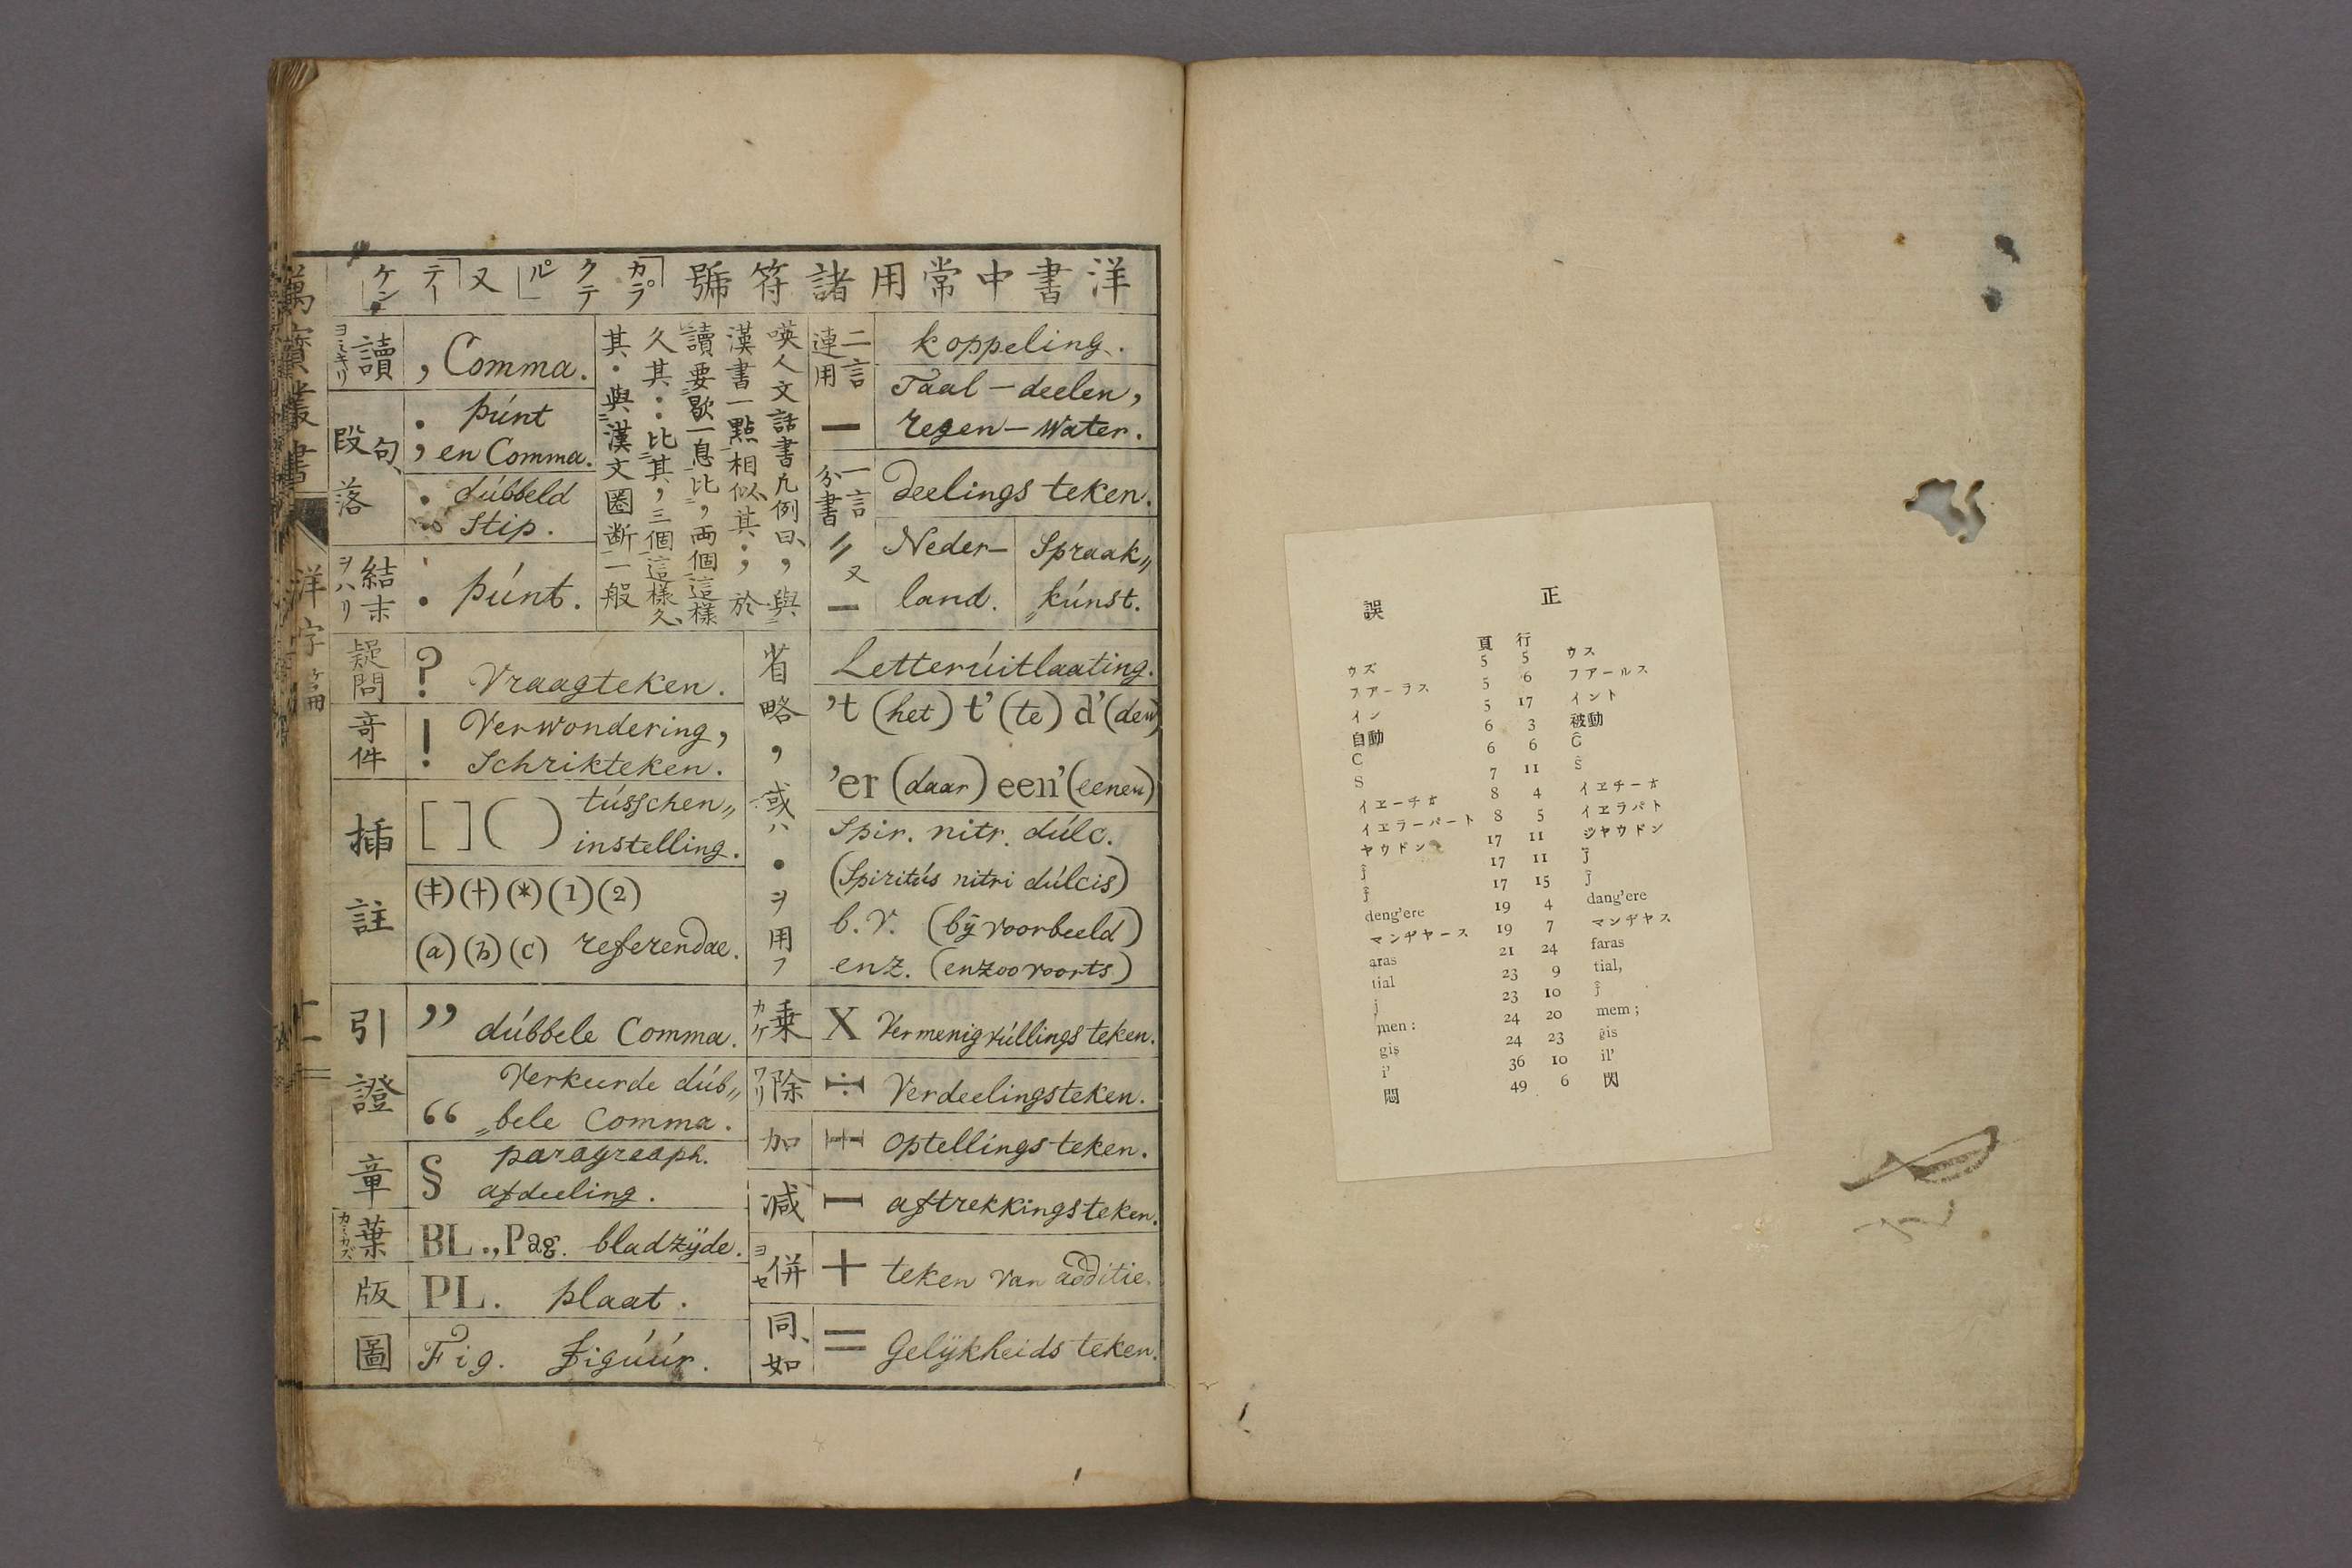 洋書中常用諸符號「カラクテル」又「テーケン」
二言連用 —
koppeling.
Taal—deelen,
regen—water.
一言分書 〃又—
deelings teken.
Neder—
land.
Spraak〃
kúnst.
嘆人文話書凡例曰、，與
漢書一點相似、其；於
讀要歇一息比，兩個這樣
久其：比其，三個這樣久、
其．與漢文圈断一般
讀 ヨミキリ
, Comma.
句、段落
; púnt
en Comma.
: dúbbeld
Stip.
結末 ヲハリ
. púnt.
省略，或ハ．ヲ用フ
Letterúitlaating.
't (het) t' (te) d' (den)
'er (daar) een' (eenen)
Spir. nitr. dúlc.
(Spiritús nitri dúlcis)
b.v. (bÿ voorbeeld)
enz. (enzoovoorts)
疑問
? Vraagteken.
竒件
! Verwondering,
Schrikteken.
插註
[ ] ( ) tússchen〃
instelling.
(‡)(†)(*)(1)(2)
(a)(b)(c) referendae.
引證
” dúbbele Comma.
“ Verkeerde dúb〃
〃bele Comma.
章
§ paragraaph.
afdeeling.
葉 カミカズ
BL., Pag. bladzÿde.
版
PL. plaat.
圖
Fig. figúúr.
乗 カケ
X Vermenigvúllings teken.
除 ワリ
÷ Verdeelingsteken.
加
Optellings teken.
減
— aftrekkingsteken.
併 ヨセ
+ teken van additie.
同、如
= Gelÿkheids teken.
萬寶叢書
洋字篇
誤 正
頁 行
ウズ 5 5 ウス
フアーラス 5 6 フアールス
イン 5 17 イント
自動 6 3 被動
C 6 6 Ĉ
S 7 11 Ŝ
イエーチオ 8 4 イエチーオ
イエラーパート 8 5 イエラパト
ヤウドン 17 11 ジヤウドン
ĵ 17 11 ĵ
ĵ 17 15 ĵ
deng'ere 19 4 dang'ere
マンヂヤース 19 7 マンヂヤス
aras 21 24 faras
tial 23 9 tial,
j 23 10 ĵ
men : 24 20 mem ;
gis 24 23 ĝis
i' 36 10 il'
悶 49 6 閃